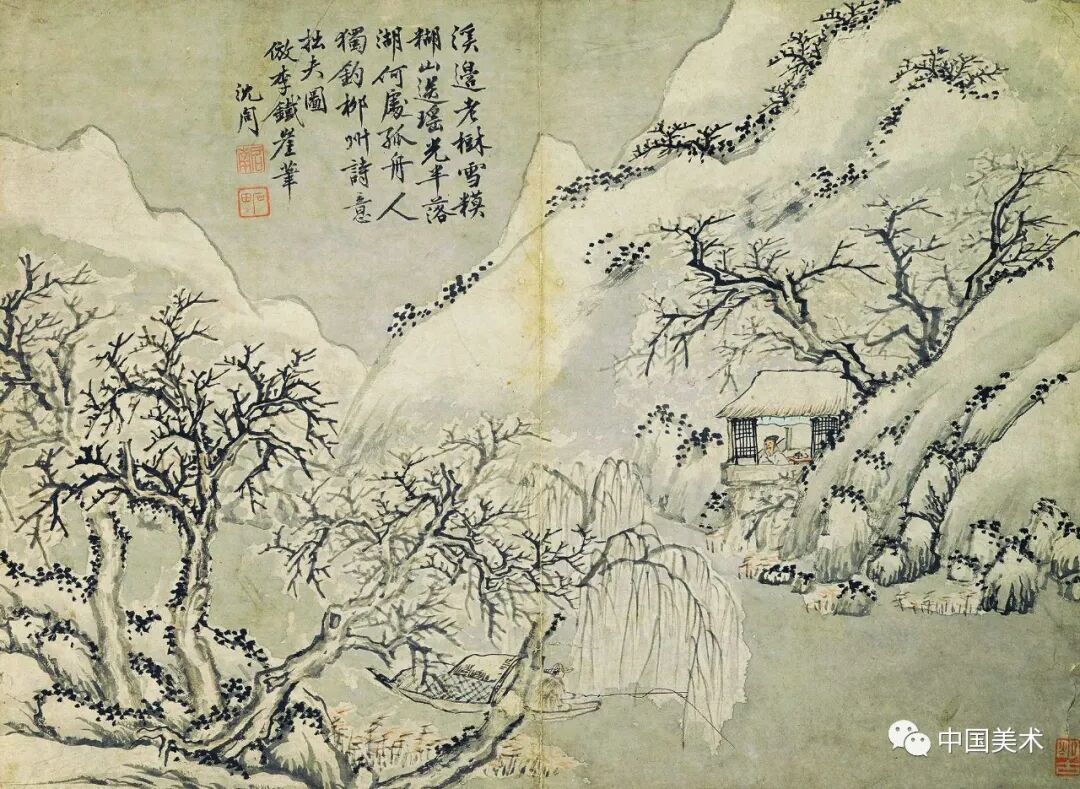 溪邊老樹雪糢
糊山送瑶光半落
湖何處孤舟人
獨釣柳州詩意
拙夫圖
倣李鐵崖筆
沈周
啓南
石田
中国美术